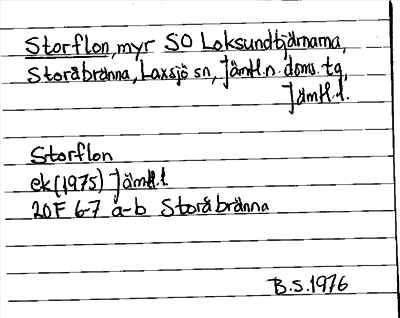 Storflon, myr SO Loksundtjärnarna,
Storåbränna, Laxsjö sn, Jämtl. n. doms. tg,
Jämtl. l.
Storflon
ek (1975) Jämtl. l
20F 6-7 a-b Storåbränna
B.S. 1976